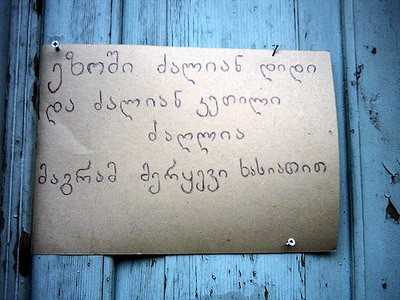 ეზოში ძალიან დიდი
და ძალიან კეთილი
ძაღლია
მაგრამ მერყევი ხასიათით